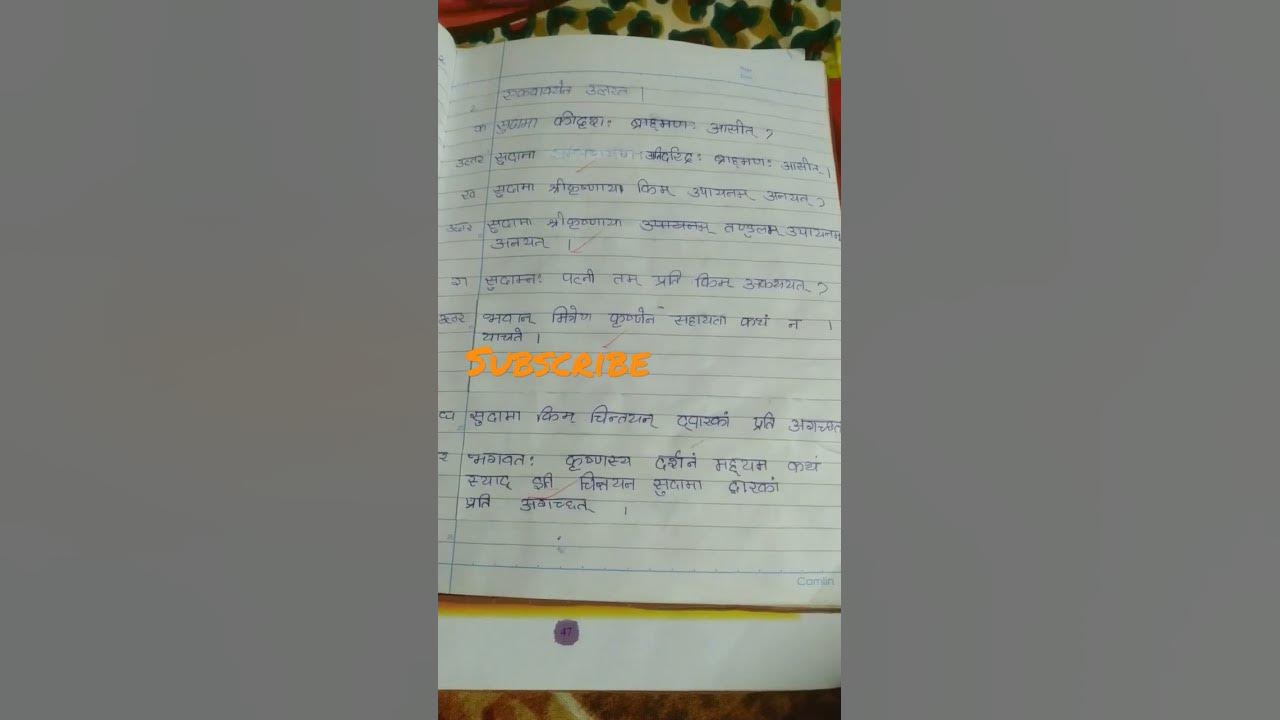 एकवाक्येन उत्तरत ।
क सुदामा कीदृशः ब्राह्मणः आसीत् ?
उत्तर सुदामा अतिदरिद्रः ब्राह्मणः आसीत् ।
ख सुदामा श्रीकृष्णाया किम् उपायनम् अनयत् ?
उत्तर सुदामा श्रीकृष्णाया उपायनम् तण्डुलम् उपायनम्
अनयत् ।
ग सुदाम्नः पत्नी तम् प्रति किम् अकथयत् ?
उत्तर भवान् मित्रेण कृष्णेन सहायता कथं न ।
याचते ।
SUBSCRIBE
घ सुदामा किम् चिन्तयन् द्वारकां प्रति अगच्छत
र भगवतः कृष्णस्य दर्शनं मह्यम कथं
स्याद् इति चिन्तयन सुदामा द्वारकां
प्रति अगच्छत् ।
Camlin
47